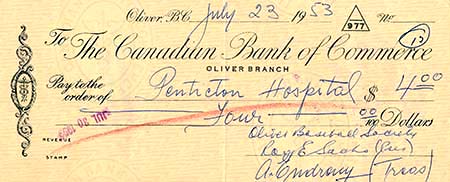 Oliver, B.C. July 23 1953 977 No
To The Canadian Bank of Commerce
OLIVER BRANCH
Pay to the order of Penticton Hospital $ 4.00
Four 00/100 Dollars
JUL 30 1953
Oliver Baseball Society
REVENUE STAMP
Roy E. Sachs (Pres)
(Treas)